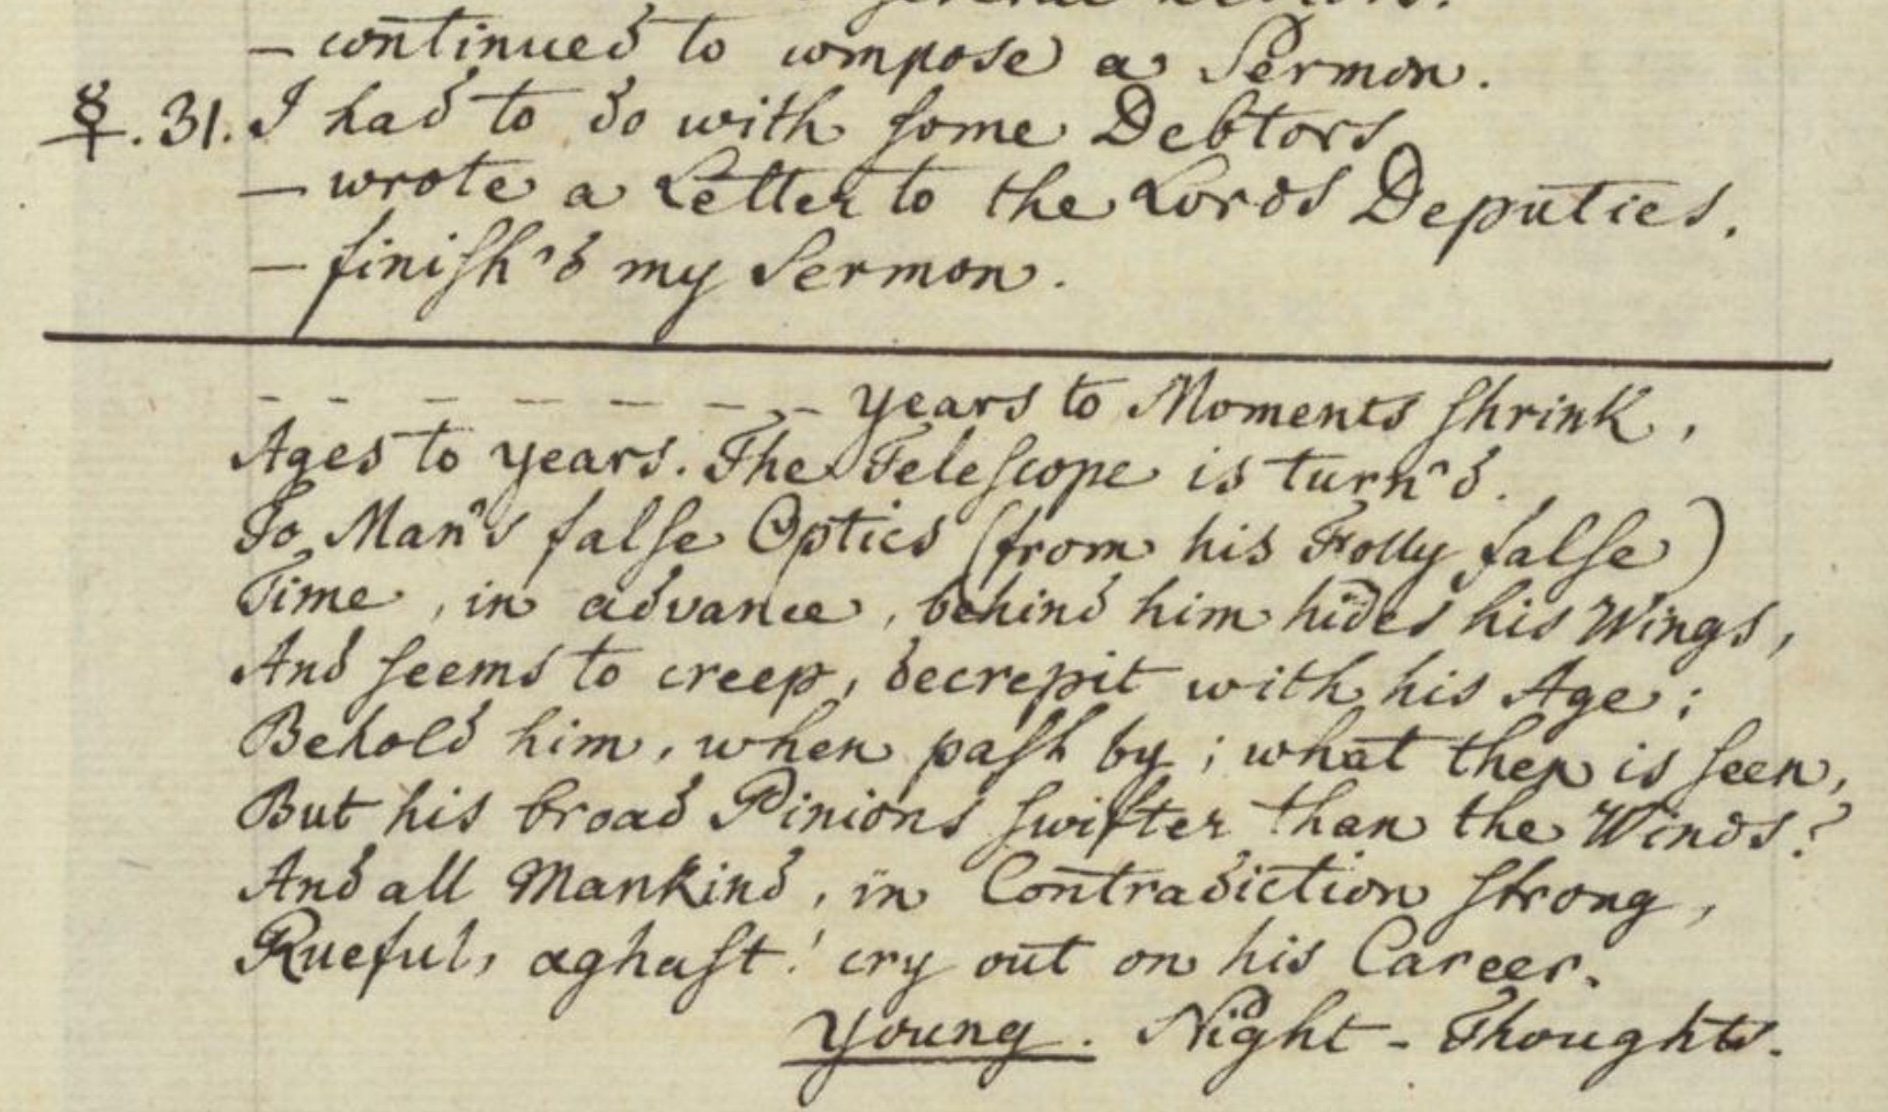 — continued to compose a Sermon.
♀. 31. I had to do with some Debtors
— wrote a Letter to the Lords Deputies.
— finish'd my Sermon.
- - - - - - - - years to Moments shrink,
Ages to years. The Telescope is turn'd.
To Man's false Optics (from his Folly false)
Time, in advance, behind him hides his Wings,
And seems to creep, decrepit with his Age;
Behold him, when past by; what then is seen,
But his broad Pinions swifter than the Winds?
And all Mankind, in Contradiction strong,
Rueful, aghast! cry out on his Career.
Young. Night-Thoughts.